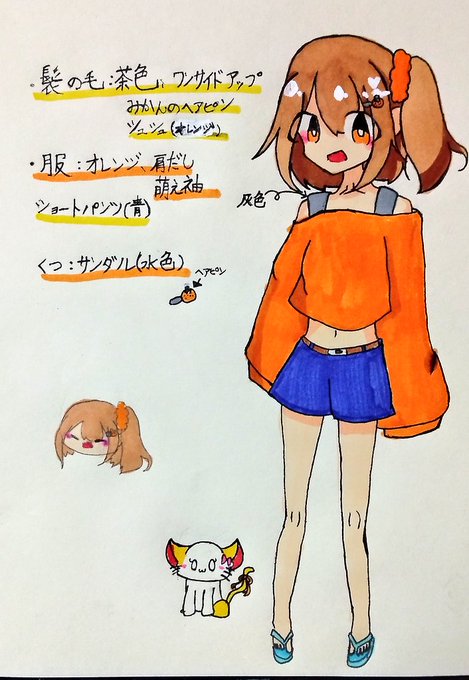 ・髪の毛:茶色、ワンサイドアップ
みかんのヘアピン
シュシュ(オレンジ)
・服:オレンジ、肩だし
萌え袖
ショートパンツ(青)
くつ:サンダル(水色)
ヘアピン
灰色